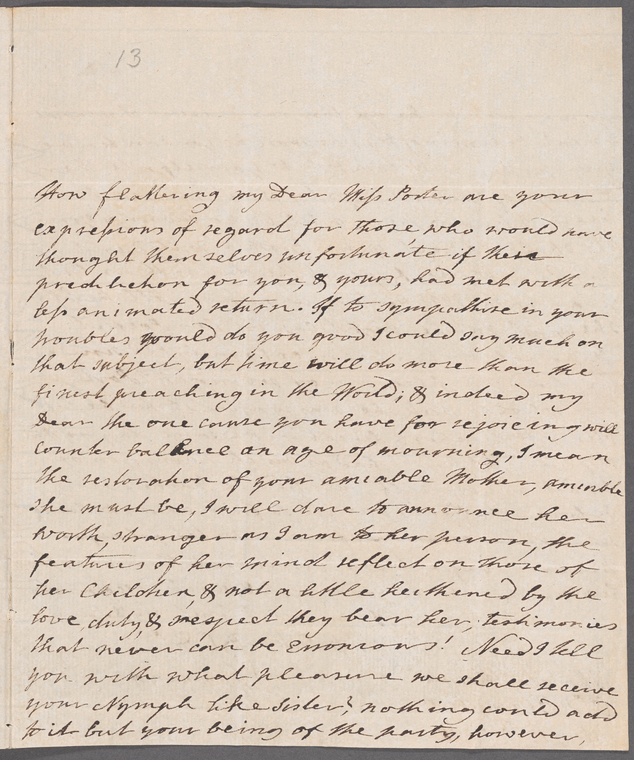 13
How flattering my Dear Miss Porter are your
expressions of regard for those, who would have
thought themselves unfortunate if their
predilection for you, & yours, had met with a
less animated return. If to sympathise in your
troubles would do you good I could say much on
that subject, but time will do more than the
finest preaching in the World; & indeed my
Dear the one cause you have for rejoiceing will
counter balence an age of mourning, I mean
the restoration of your amiable Mother, amiable
she must be, I will dare to announce her
worth, stranger as I am to her person, the
features of her mind reflect on those of
her Children, & not a little heithened by the
love, duty, & respect they bear her, testimonies
that never can be Erronious! Need I tell
you with what pleasure we shall receive
your Nymph like Sister? nothing could add
to it but your being of the party, however,